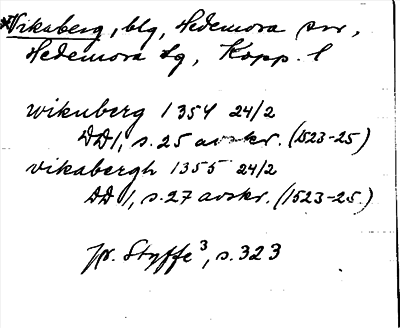 *Vikaberg, blg, Hedemora snr,
Hedemora tg, Kopp. l
wikuberg 1354 24/2
DD1, s. 25 avskr. (1523-25)
vikabergh 1355 24/2
DD 1, s. 27 avskr. (1523-25)
Jfr. Styffe³, s. 323